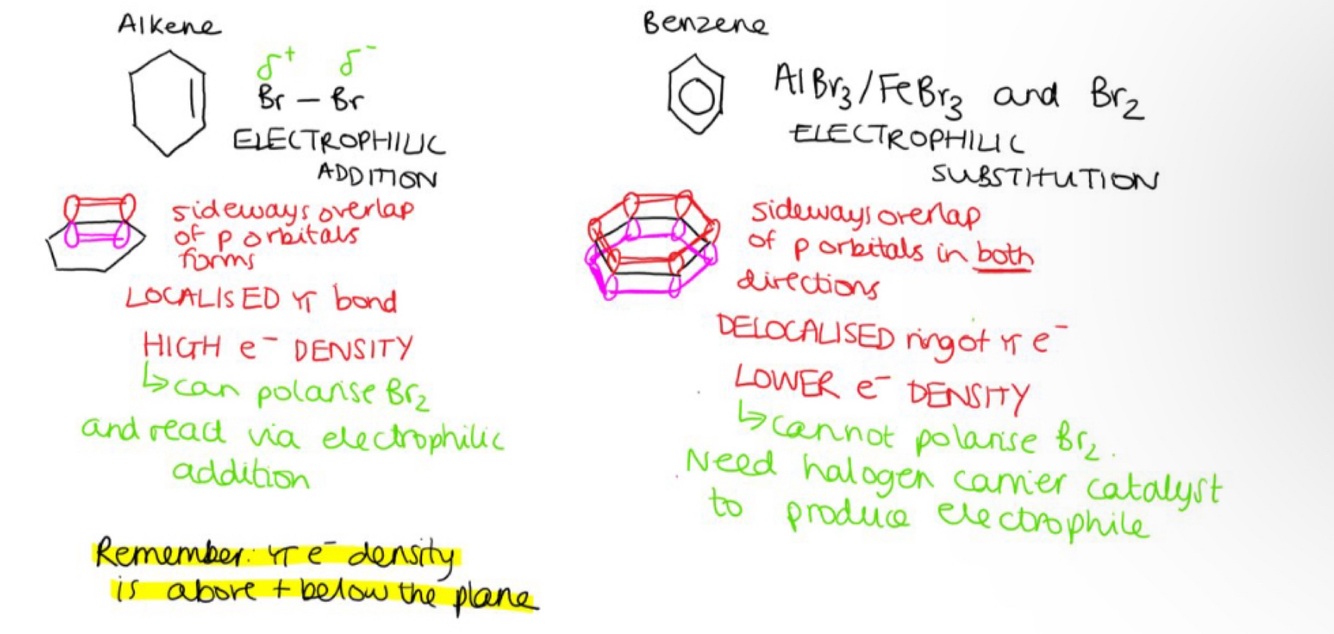 Alkene
δ+ δ-
Br — Br
ELECTROPHILIC
ADDITION
sideways overlap
of p orbitals
forms
LOCALISED π bond
HIGH e⁻ DENSITY
↳ can polarise Br₂
and react via electrophilic
addition
Remember: π e⁻ density
is above + below the plane
Benzene
AlBr₃/FeBr₃ and Br₂
ELECTROPHILIC
SUBSTITUTION
sideways overlap
of p orbitals in both
directions
DELOCALISED ring of π e⁻
LOWER e⁻ DENSITY
↳ cannot polarise Br₂.
Need halogen carrier catalyst
to produce electrophile